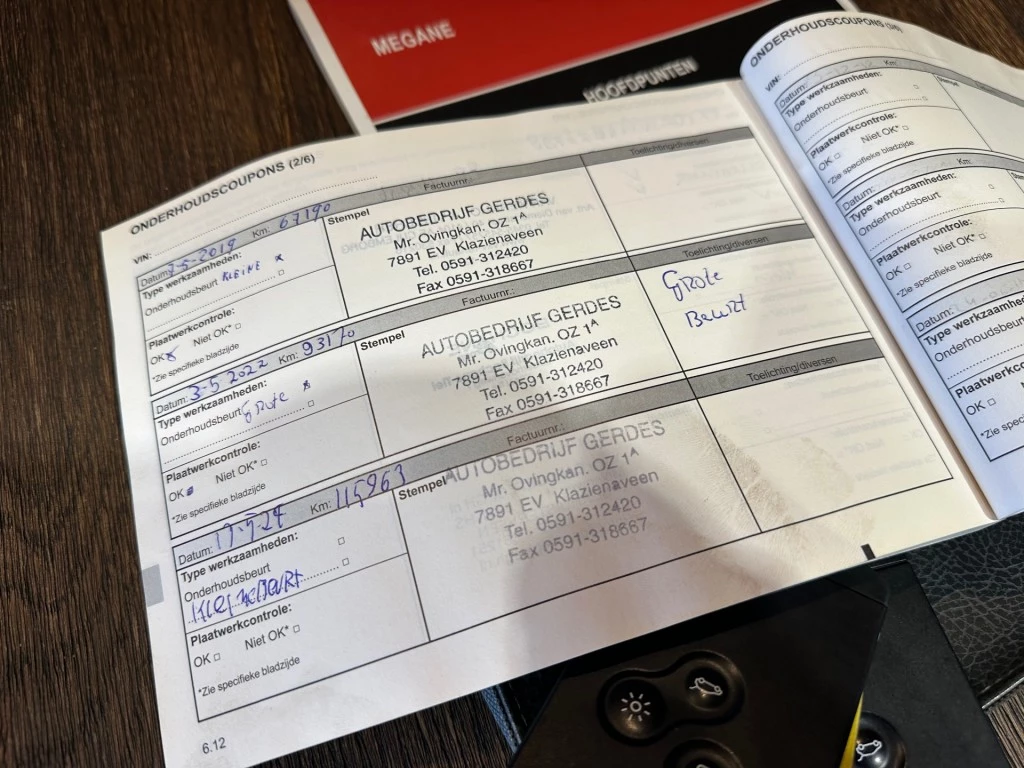 MEGANE
HOOFDPUNTEN
ONDERHOUDSCOUPONS (2/6)
VIN:
Datum: 2-5-2019 Km: 67190 Factuurnr.:
Toelichting/diversen
Type werkzaamheden:
Onderhoudsbeurt KLEINE x
Plaatwerkcontrole:
OK Niet OK*
*Zie specifieke bladzijde
Stempel
AUTOBEDRIJF GERDES
Mr. Ovingkan. OZ 1A
7891 EV Klazienaveen
Tel. 0591-312420
Fax 0591-318667
Datum: 3-5 2022 Km: 93170 Factuurnr.:
Toelichting/diversen
Type werkzaamheden:
Onderhoudsbeurt Grote x
Plaatwerkcontrole:
OK Niet OK*
*Zie specifieke bladzijde
Stempel
AUTOBEDRIJF GERDES
Mr. Ovingkan. OZ 1A
7891 EV Klazienaveen
Tel. 0591-312420
Fax 0591-318667
Grote
Beurt
Datum: 17-9-24 Km: 115963 Factuurnr.:
Toelichting/diversen
Type werkzaamheden:
Onderhoudsbeurt
Plaatwerkcontrole:
OK Niet OK*
*Zie specifieke bladzijde
Stempel
AUTOBEDRIJF GERDES
Mr. Ovingkan. OZ 1A
7891 EV Klazienaveen
Tel. 0591-312420
Fax 0591-318667
6.12
ONDERHOUDSCOUPONS (3/6)
VIN:
Datum: Km:
Type werkzaamheden:
Onderhoudsbeurt
Plaatwerkcontrole:
OK Niet OK*
*Zie specifieke bladzijde
Datum: Km:
Type werkzaamheden:
Onderhoudsbeurt
Plaatwerkcontrole:
OK Niet OK*
*Zie specifieke bladzijde
Datum:
Type werkzaamheden:
Onderhoudsbeurt
Plaatwerkcontrole:
OK